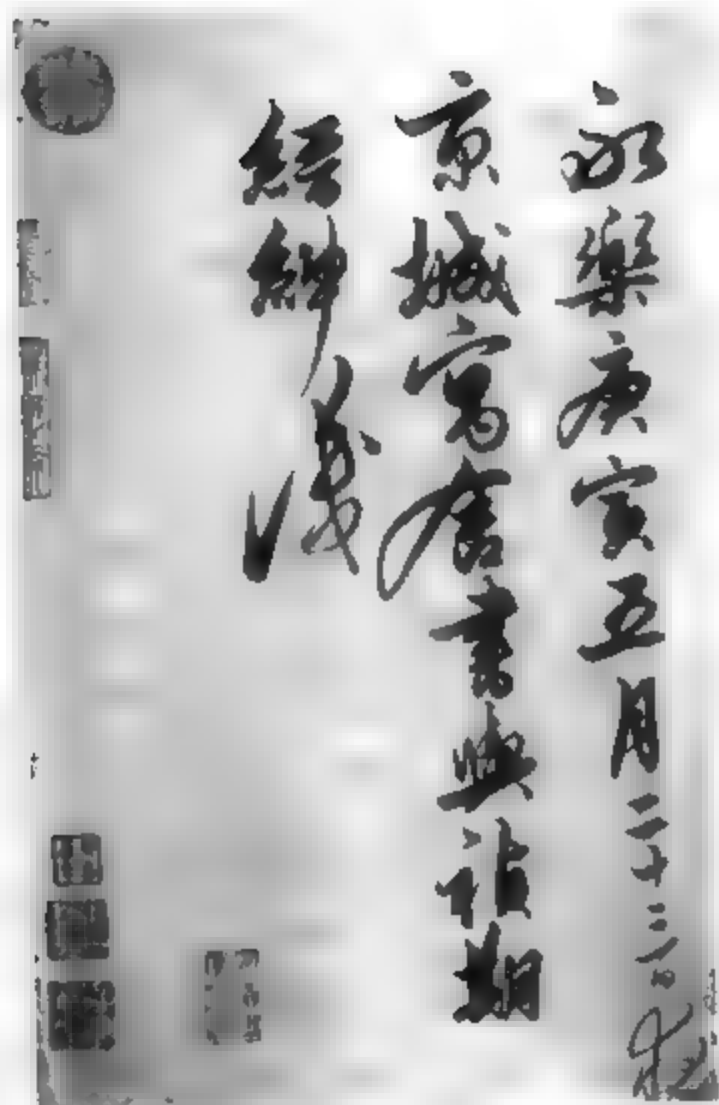 永樂庚寅五月二十三日於
京城寓舍書與禎期
縉紳識